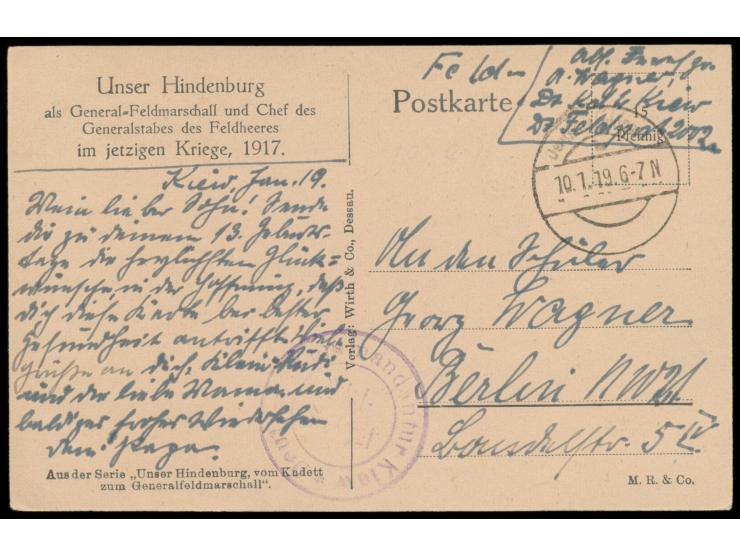 Unser Hindenburg
als General-Feldmarschall und Chef des
Generalstabes des Feldheeres
im jetzigen Kriege, 1917.
Kiew, Jan. 19.
Mein lieber Sohn! Sende
dir zu deinem 13. Geburts-
tage die herzlichsten Glück-
wünsche in der Hoffnung, daß
dich diese Karte bei bester
Gesundheit antrifft. Viele
Grüße an dich, Klein Rudi
und die liebe Mama und
baldiges frohes Wiedersehen
dein Papa.
Aus der Serie „Unser Hindenburg, vom Kadett
zum Generalfeldmarschall".
Verlag: Wirth & Co., Dessau.
Feld-
Postkarte
Abs.
A. Wagner,
Kiew
Dt. Feldpost 2002
15
Pfennig
10.1.19. 6-7 N
An den Schüler
Georg Wagner
Berlin NW 21
Bandelstr. 5
Kommandantur Kiew
M. R. & Co.